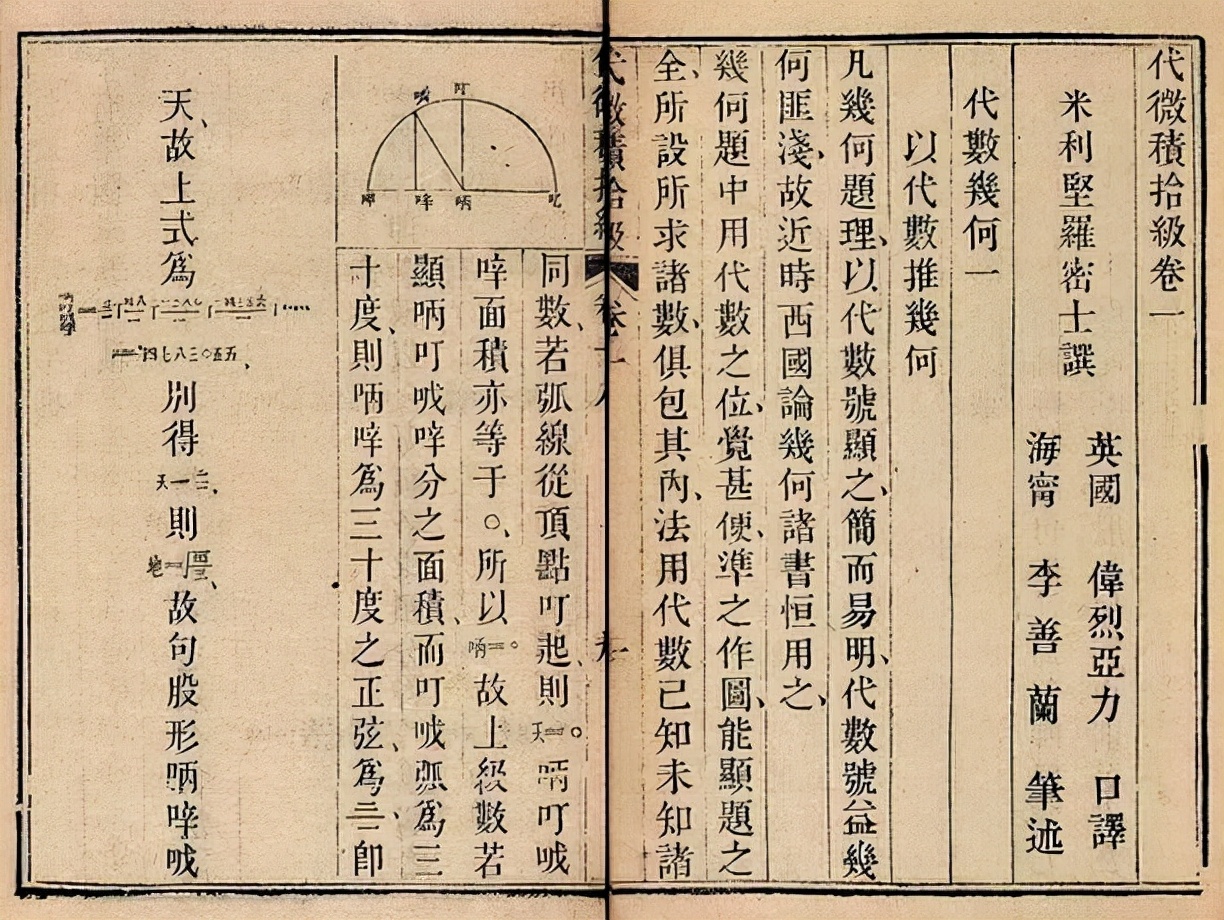 代微積拾級卷一
米利堅羅密士譔
英國 偉烈亞力 口譯
海甯 李善蘭 筆述
代數幾何一
以代數推幾何
凡幾何題理、以代數號顯之、簡而易明、代數號益幾
何匪淺、故近時西國論幾何諸書恒用之、
幾何題中用代數之位、覺甚便、準之作圖、能顯題之
全、所設所求諸數、俱包其內、法用代數已知未知諸
代微積拾級
同數、若弧線從頂點叮起、則天=○。𠰳叮㖅
㖕面積亦等于○、所以𠰳=○。故上級數若
顯𠰳叮㖅㖕分之面積、而叮㖅弧爲三
十度、則𠰳㖕爲三十度之正弦、爲二一、卽
天、故上式爲
別得
則
故句股形𠰳㖕㖅